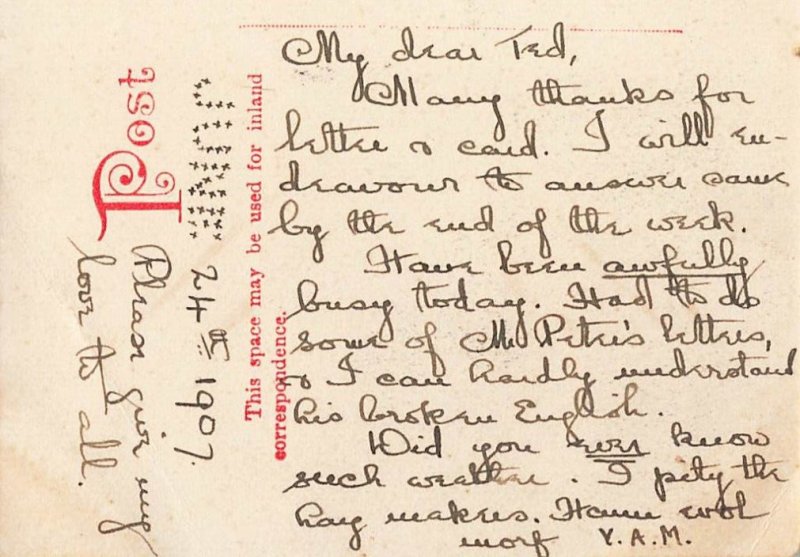 My dear Ted,
Many thanks for
letter & card. I will en-
deavour to answer same
by the end of the week.
Have been awfully
busy today. Had to do
some of Mr Peter's letters,
& I can hardly understand
his broken English.
Did you ever know
such weather. I pity the
hay makers.
Y.A.M.
This space may be used for inland
correspondence.
24th 1907.
Post
Please give my
love to all.